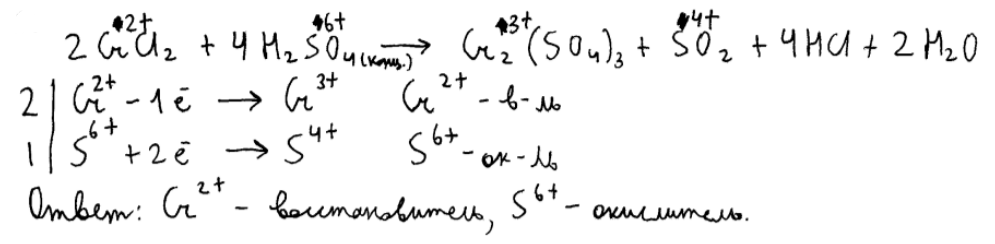 2CrCl₂ + 4H₂SO₄(конц.) → Cr₂³⁺(SO₄)₃ + S⁴⁺O₂ + 4HCl + 2H₂O
2 | Cr²⁺ - 1ē → Cr³⁺ Cr²⁺ - в-ль
1 | S⁶⁺ + 2ē → S⁴⁺ S⁶⁺ - ок-ль
Ответ: Cr²⁺ - восстановитель, S⁶⁺ - окислитель.